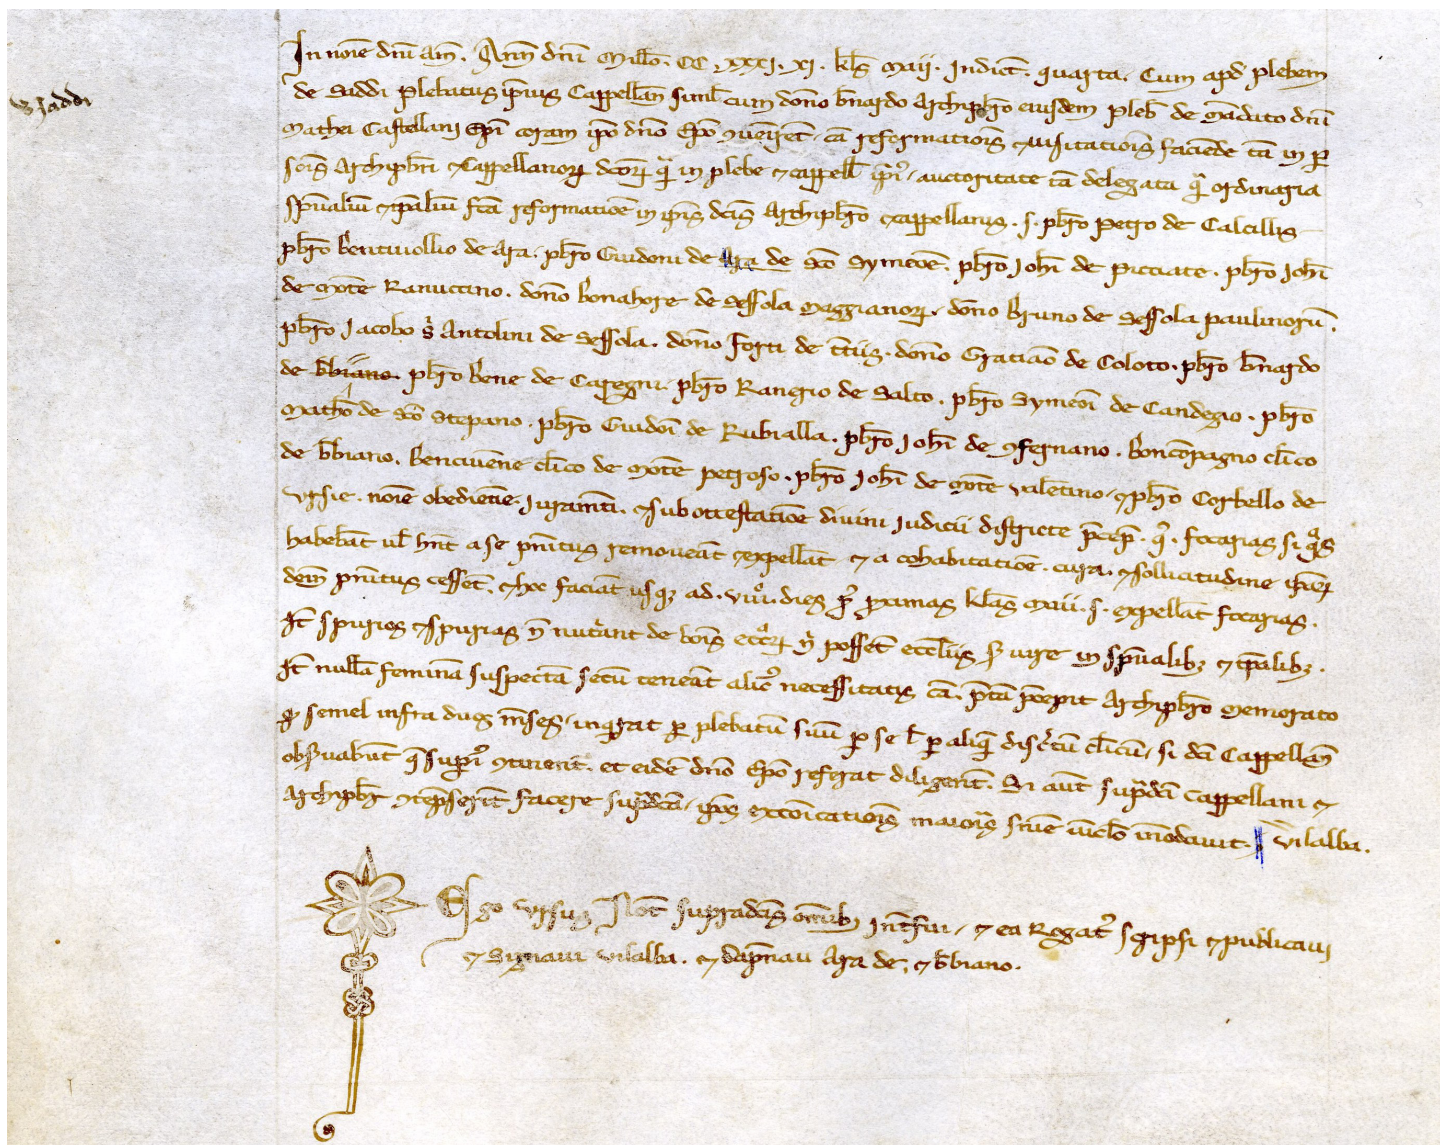 Saddi
In noīe dn̄i am̄. Ann̄ dn̄i Mill̄o. CC. xxxj. xj. kl̄s maij. Indict̄. quarta. Cum apd̄ plebem
de Saddi plebatus ip̄ius Cappell̄an simul̄ cum don̄o b̄nardo Archipb̄ro eiusdem pleb̄ de mādato dn̄i
Mathei Castellani Ep̄i coram ip̄o dn̄o Ep̄o ꝯuēirēt, cā reformatiōīs ⁊ uisitatiōīs faciēde tā in ꝑ
sōīs Archipb̄ri ⁊ Cappellanoꝝ dc̄oꝝ qͣ̄ in plebe ⁊ cappell̄ ip̄iꝰ, auctoritate tā delegata qͣ̄ ordinaria
sp̄ualiū ⁊ tp̄aliū fc̄a reformatiōe in ip̄is dc̄is Archipb̄ro ⁊ cappellanis. s. pb̄ro Petro de Calcillis
pb̄ro bentiuollio de Ara. pb̄ro Guidoni de Ara de Sc̄o Symeōe. pb̄ro Joh̄i de picciate. pb̄ro Joh̄i
de Mōte Ranuccino. don̄o bonahore de Sessola Maggianoꝝ. don̄o bruno de Sessola paulinorū.
pb̄ro Jacobo s̄ Antolini de Sessola. don̄o forti de t̄tiis. don̄o Gratiāo de Coloto. pb̄ro b̄nardo
de b̄biano. pb̄ro bene de Caregni. pb̄ro Rancrio de Salto. pb̄ro Symeōi de Candegio. pb̄ro
Math̄o de Sc̄o Stepano. pb̄ro Guidōi de Rubialla. pb̄ro Joh̄i de ꝯfernano. bonc̄opagno cl̄ico
de b̄biano. benciuēne cl̄ico de Mōte petroso. pb̄ro Joh̄i de Mōte ualētino, ⁊ pb̄ro Corbello de
Vrsie. noīe obediētie iuram̄ti. ⁊ sub ottestatiōe diuini iudicii districte p̄cep̄. qͩ. focarias si qͣs
habebāt ul̄ hn̄t a se pn̄itus remoueāt ⁊ expellāt ⁊ a cohabitatiōe. cura. ⁊ sollicitudine ip̄aꝝ
dem̄ pn̄itus cessēt. ⁊ hoc faciāt usqꝫ ad. uiij. dies pͬ ꝓximas kl̄as maii. s. expellāt focarias.
It̄ spurios ⁊ spurias n̄ nutͥant de bōis eccꝉaꝝ nͨ possēt ecc̄l̄iis ẜuire in sp̄ualibꝫ ⁊ tp̄alibꝫ.
It̄ nullā feminā suspectā secū teneāt alicꝰ necessitatis cā. p̄tā p̄cepit Archipb̄ro memorato
qͩ semel infra duos m̄ses, inqͥrat ꝑ plebatū suū ꝑ se ł ꝑ aliqͣ̄ discͤtū cl̄icū, si dc̄i Cappellān
obẜuabūt qͤ supͥꝰ ꝯtinent̄. et eidē dn̄o Ep̄o referat diligent̄. Si aūt supͣdc̄i Cappellani ⁊
Archipb̄r ꝯtēpserit facere supͣdc̄a, ip̄os excōicatiōis maiorͥs sn̄ie uīcl̄o īnodauit. Vilalba.
Ego Vrsus Not̄ supradc̄is om̄ibꝫ int̄fui, ⁊ ea Rogatꝰ scripsi ⁊ publicaui
⁊ Signaui Vilalba. ⁊ dāpnaui Ara de, ⁊ b̄biano.